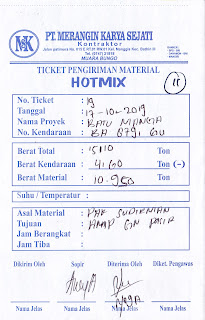 MK
PT. MERANGIN KARYA SEJATI
Kontraktor
MUARA BUNGO
TICKET PENGIRIMAN MATERIAL
HOTMIX
11
No. Ticket : 19
Tanggal : 17-10-2019
Nama Proyek : BATU MANGIA
No. Kendaraan : BA 8791 GU
Berat Total : 15110 Ton
Berat Kendaraan : 4160 Ton (-)
Berat Material : 10.950 Ton
Suhu / Temperatur :
Asal Material : PAK SUDIRMAN
Tujuan : AMP GN PASIR
Jam Berangkat :
Jam Tiba :
Dikirim Oleh Supir Diterima Oleh Diket. Pengawas
Nama Jelas Nama Jelas Nama Jelas Nama Jelas